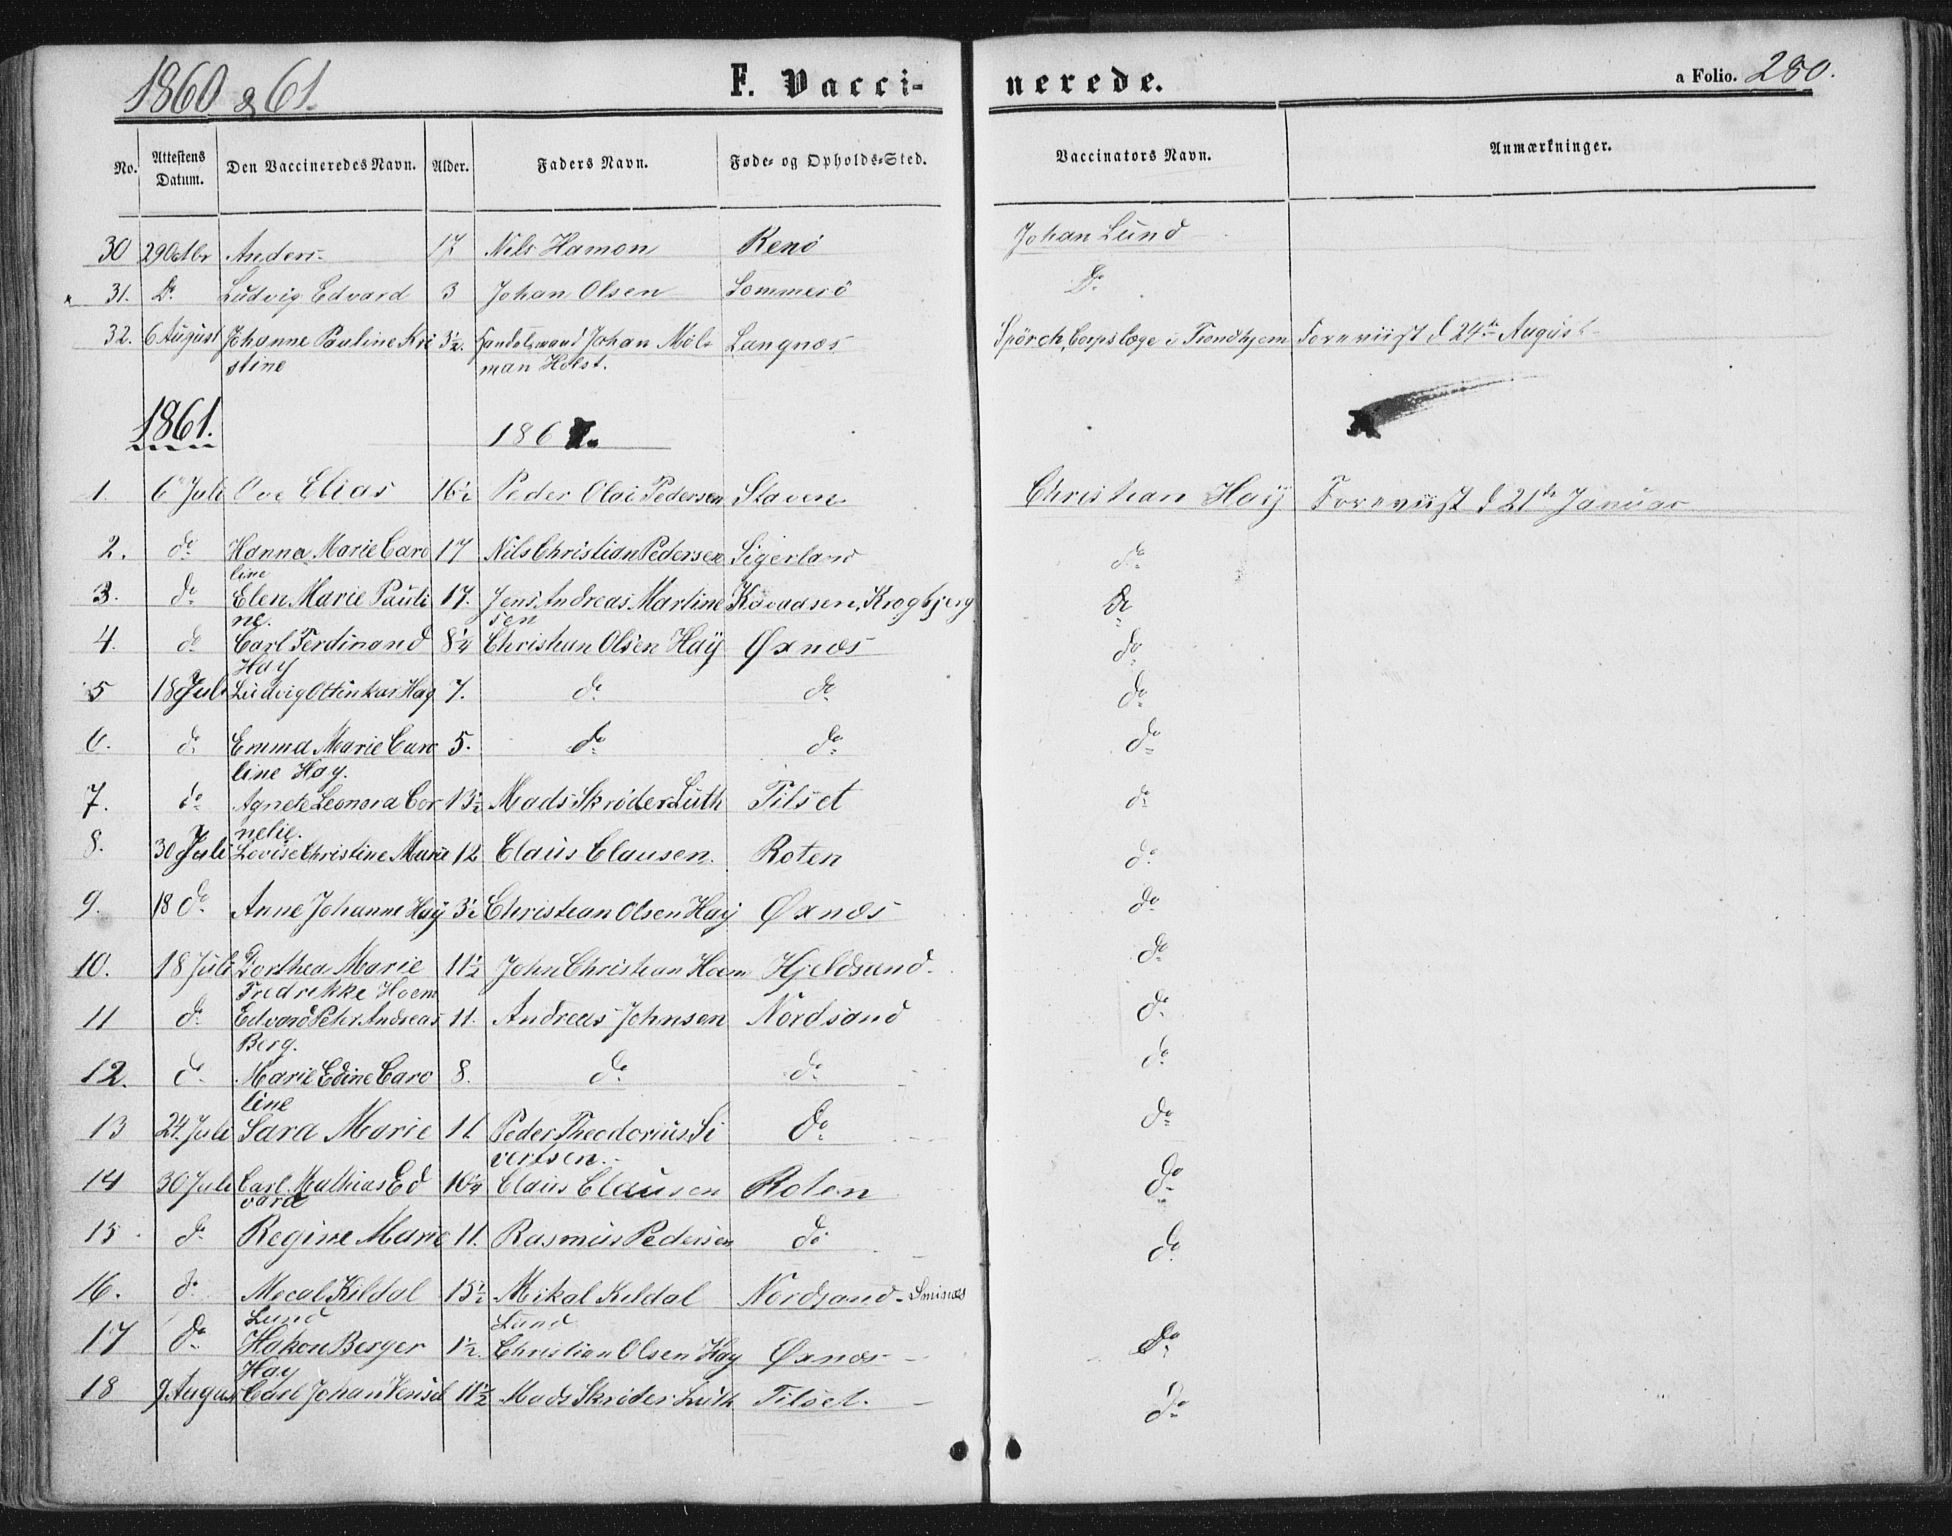 1860 & 61. F. Vaccinerede. a Folio. 280.
No. Attestens Datum. Den Vaccineredes Navn. Alder. Faders Navn. Føde- og Opholds-Sted. Vaccinators Navn. Anmærkninger.
30 29 Octbr Anders 17 Nils Hamon Renö Johan Lund
31. Do Ludvig Edvard 3 Johan Olsen Sommerö Do
32. 6 August Johanne Pauline Kri 3½. Handelsmand Johan Möl Langnæs Spörck, Corpslæge i Trondhjem Foreviist d 24de August
stine man Holst.
1861. 1861.
1. 6 Juli Ove Elias 16½ Peder Olai Pedersen Staven Christian Haÿ Foreviist d 21de Januar
2. do Hanna Marie Caro 17 Nils Christian Pedersen Sigerland do
line
3. do Elen Marie Pauli 17. Jens Andreas Martine Kavaasen, Kragbjerg Do
ne. sen
4. do Carl Ferdinand 8¼ Christian Olsen Haÿ Øxnæs do
Hay
5 18 Juli Ludvig Ottinkar Hay 7. do do do
6. do Emma Marie Caro 5. do do do
line Hay.
7. do Agnete Leonora Cor 13½ Mads Skrøder Luth Tilset do
nelie.
8. 30 Juli Lovise Christine Marie 12 Claus Clausen. Roten do
9. 18 do Anne Johanne Haÿ 3½ Christian Olsen Haÿ Øxnæs do
10. 18 Juli Dorthea Marie 11½ John Christian Hoem Hjeldsand do
Fredrikke Hoem
11 do Edvard Peter Andreas 11. Andreas Johnsen Nordsand do
Berg.
12. do Marie Edine Caro 8. do do do
line
13 24. Juli Sara Marie 11. Peder Theodorius Si do do
vertsen.
14 30 Juli Carl Mathias Ed 10¼ Claus Clausen Roten do
vard
15 do Regine Marie 11. Rasmus Pedersen do do
16. do Mecal Kildal 15½ Mikal Kildal Nordsand - Sminæs
Lund Lund
17 do Hakon Berger 1½. Christian Olsen Hay Øxnæs Do
Hay
18 9 August Carl Johan 11½ Mads Skrøder Luth Tilset. do